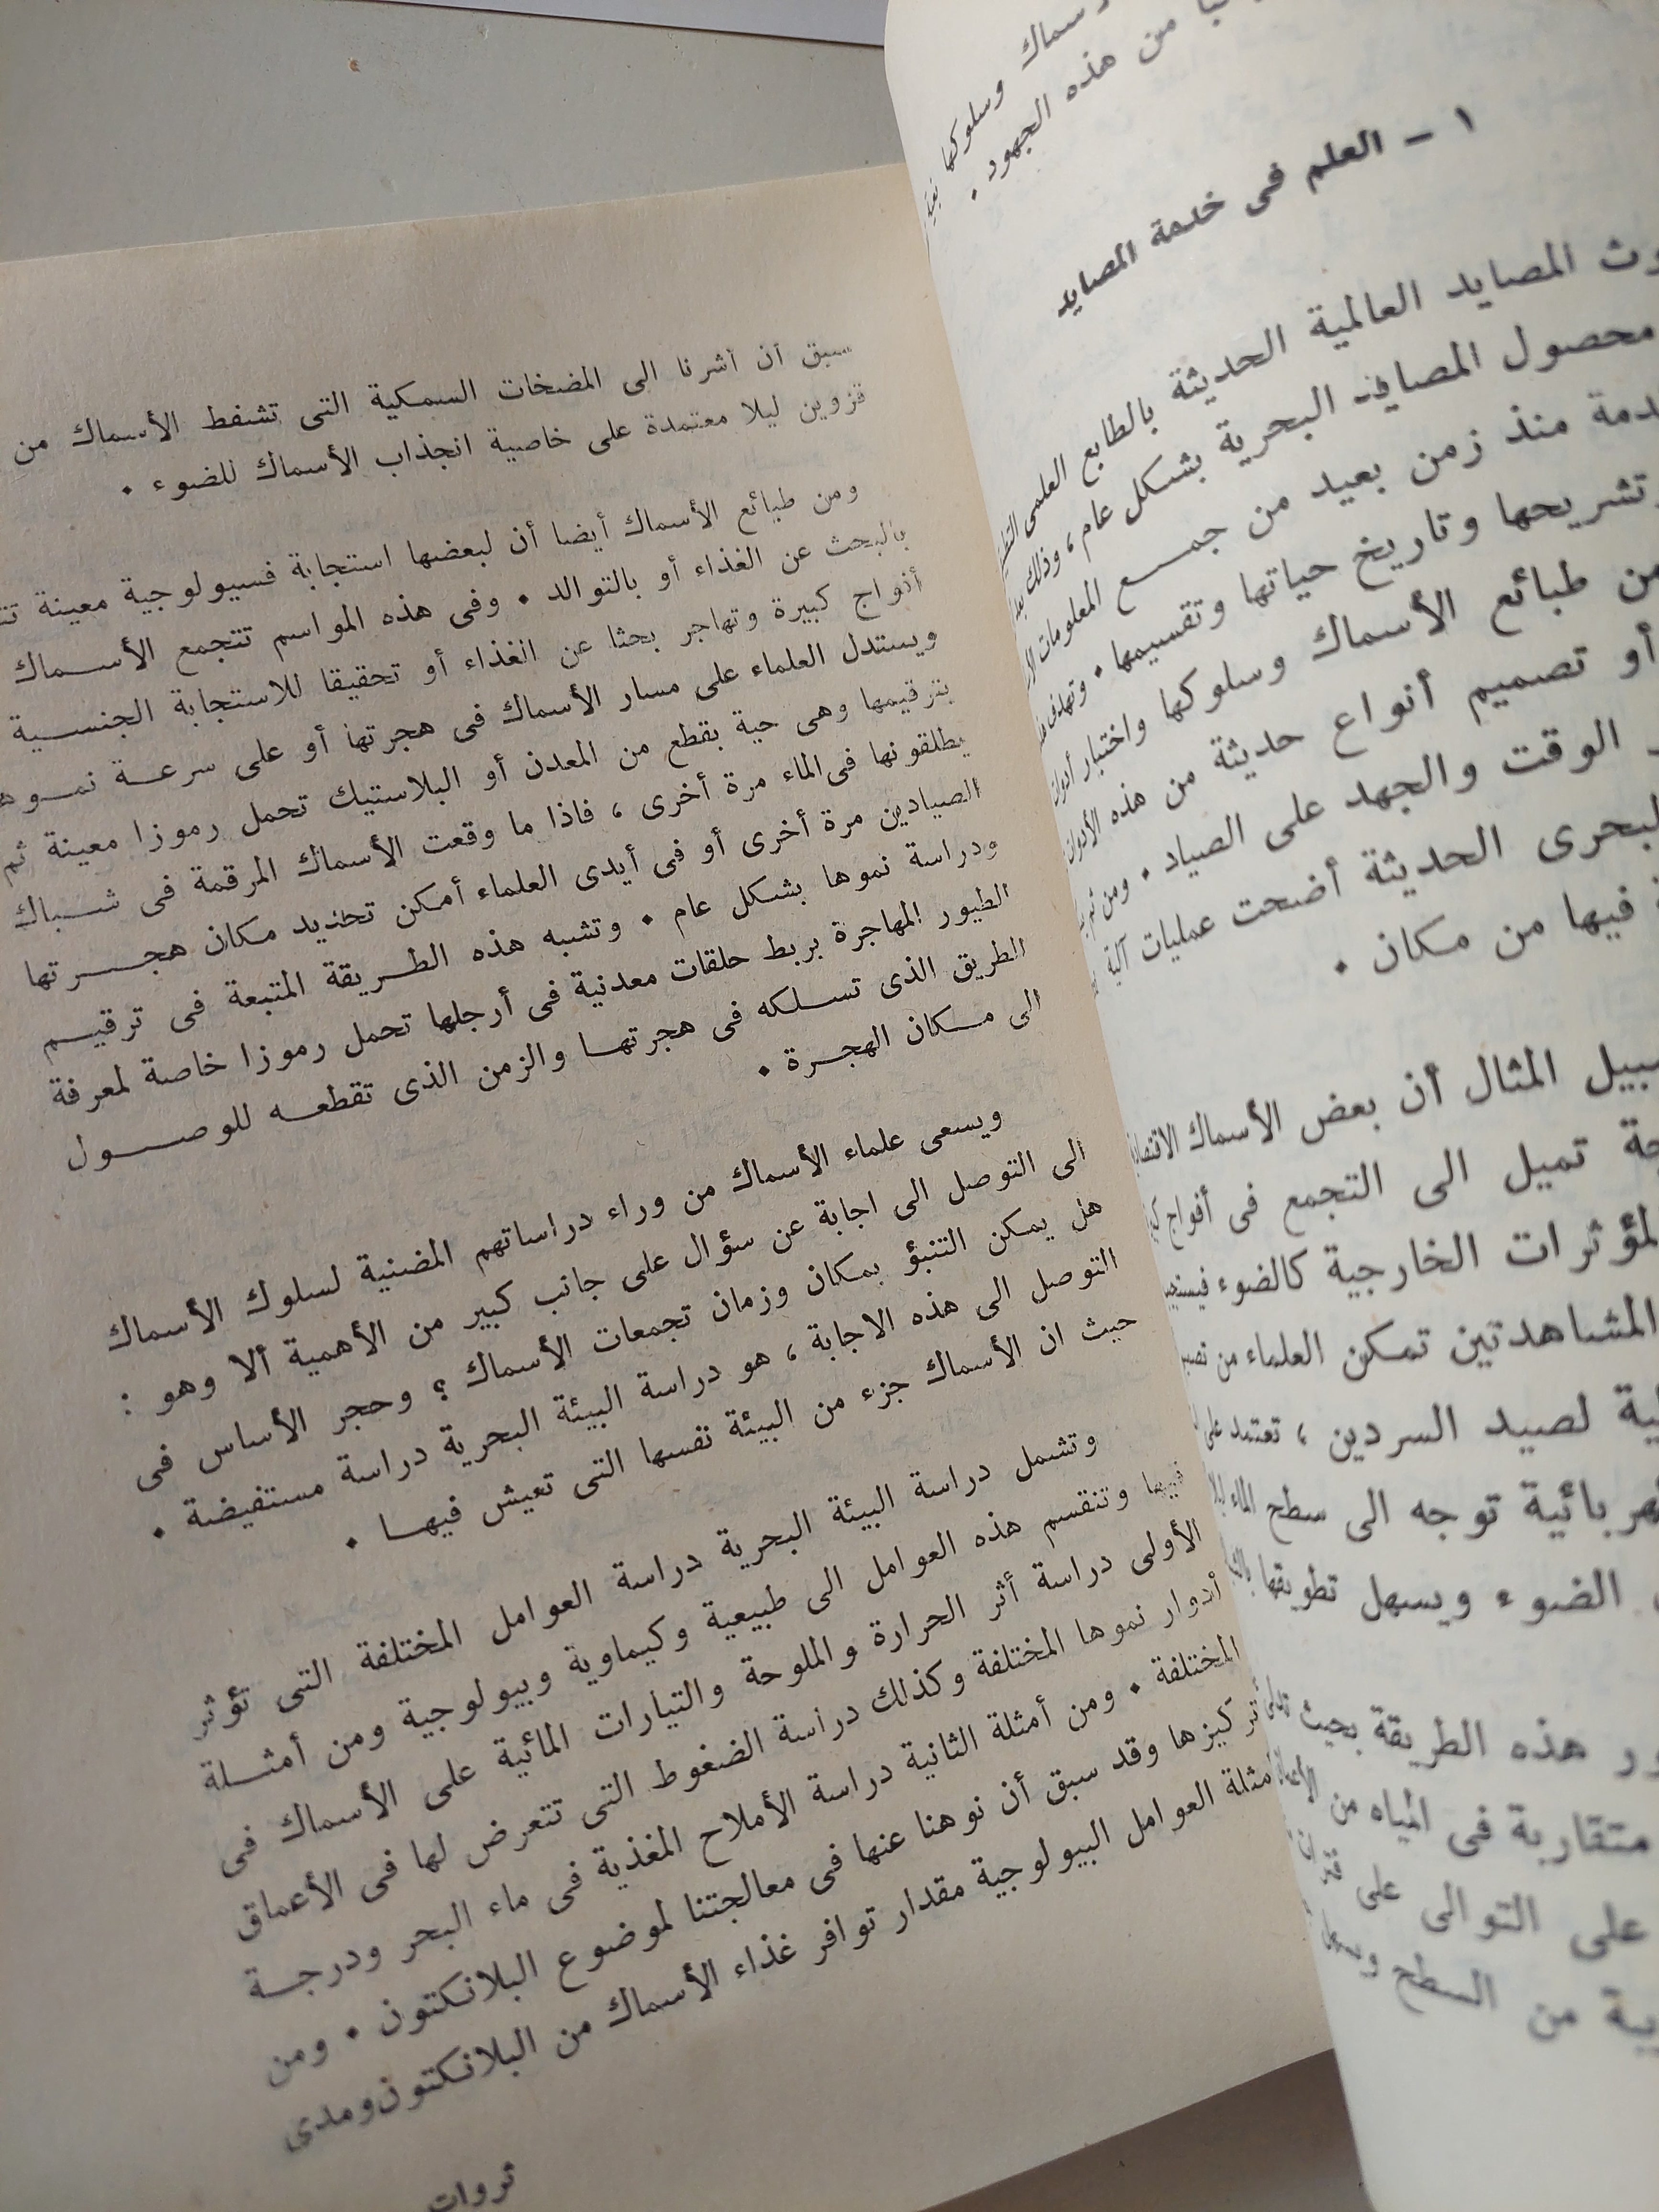 وسلوكها
من هذه الجهود .
١ - العلم فى خدمة المصايد
المصايد العالمية الحديثة بالطابع العلمى
محصول المصايد البحرية بشكل عام ، وذلك
منذ زمن بعيد من جمع المعلومات
وتشريحها وتاريخ حياتها وتقسيمها .
من طبائع الأسماك وسلوكها واختبار
أو تصميم أنواع حديثة من هذه الأدوات
الوقت والجهد على الصياد .
البحرى الحديثة أضحت عمليات آلية
فيها من مكان .
سبيل المثال أن بعض الأسماك
تميل الى التجمع فى أفواج
المؤثرات الخارجية كالضوء
المشاهدتين تمكن العلماء من
لصيد السردين ، تعتمد على
كهربائية توجه الى سطح الماء
الضوء ويسهل تطويقها
هذه الطريقة بحيث
متقاربة فى المياه من
على التوالى على
من السطح
سبق أن أشرنا الى المضخات السمكية التى تشفط الأسماك من
قزوين ليلا معتمدة على خاصية انجذاب الأسماك للضوء .
ومن طبائع الأسماك أيضا أن لبعضها استجابة فسيولوجية معينة
بالبحث عن الغذاء أو بالتوالد . وفى هذه المواسم تتجمع الأسماك
أفواج كبيرة وتهاجر بحثا عن الغذاء أو تحقيقا للاستجابة الجنسية
ويستدل العلماء على مسار الأسماك فى هجرتها أو على سرعة نموها
بترقيمها وهى حية بقطع من المعدن أو البلاستيك تحمل رموزا معينة ثم
يطلقونها فى الماء مرة أخرى ، فاذا ما وقعت الأسماك المرقمة فى شباك
الصيادين مرة أخرى أو فى أيدى العلماء أمكن تحديد مكان هجرتها
ودراسة نموها بشكل عام . وتشبه هذه الطريقة المتبعة فى ترقيم
الطيور المهاجرة بربط حلقات معدنية فى أرجلها تحمل رموزا خاصة لمعرفة
الطريق الذى تسلكه فى هجرتها والزمن الذى تقطعه للوصول
الى مكان الهجرة .
ويسعى علماء الأسماك من وراء دراساتهم المضنية لسلوك الأسماك
الى التوصل الى اجابة عن سؤال على جانب كبير من الأهمية ألا وهو :
هل يمكن التنبؤ بمكان وزمان تجمعات الأسماك ؟ وحجر الأساس فى
التوصل الى هذه الاجابة ، هو دراسة البيئة البحرية دراسة مستفيضة .
حيث ان الأسماك جزء من البيئة نفسها التى تعيش فيها .
وتشمل دراسة البيئة البحرية دراسة العوامل المختلفة التى تؤثر
فيها وتنقسم هذه العوامل الى طبيعية وكيماوية وبيولوجية ومن أمثلة
الأولى دراسة أثر الحرارة والملوحة والتيارات المائية على الأسماك فى
أدوار نموها المختلفة وكذلك دراسة الضغوط التى تتعرض لها فى الأعماق
المختلفة . ومن أمثلة الثانية دراسة الأملاح المغذية فى ماء البحر ودرجة
تركيزها وقد سبق أن نوهنا عنها فى معالجتنا لموضوع البلانكتون . ومن
أمثلة العوامل البيولوجية مقدار توافر غذاء الأسماك من البلانكتون ومدى
ثروات